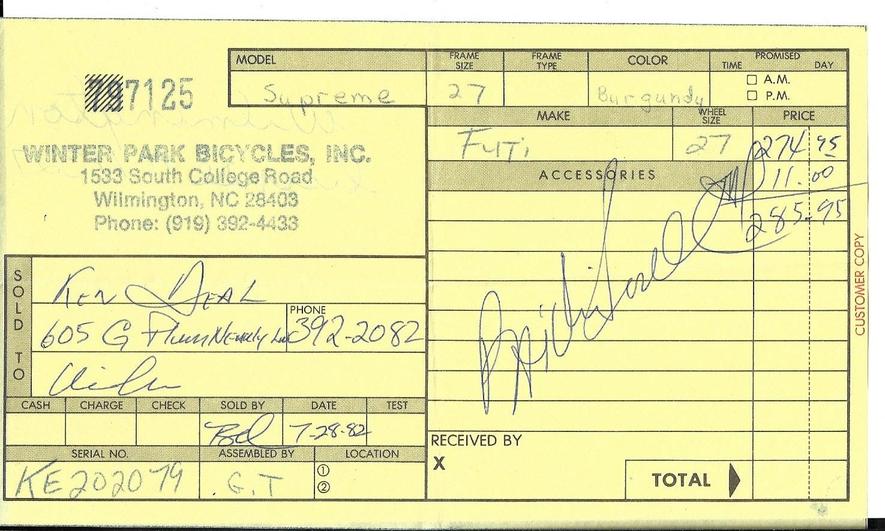 797125
WINTER PARK BICYCLES, INC.
1533 South College Road
Wilmington, NC 28403
Phone: (919) 392-4433
MODEL
Supreme
FRAME SIZE
27
FRAME TYPE
COLOR
Burgundy
PROMISED
TIME DAY
A.M.
P.M.
MAKE
Fuji
WHEEL SIZE
27
PRICE
274 95
ACCESSORIES
11.00
285.95
SOLD TO
Ken Deal
605 G
PHONE
392-2082
CASH CHARGE CHECK SOLD BY DATE TEST
7-28-82
SERIAL NO. ASSEMBLED BY LOCATION
KE202079 G.T ① ②
RECEIVED BY
X
TOTAL
CUSTOMER COPY